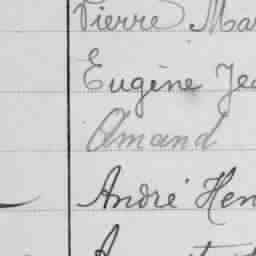 Pierre Mar
Eugène Jea
Amand
André Hen